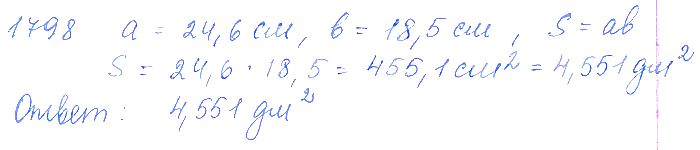 1798 a = 24,6 см, b = 18,5 см, S = ab
S = 24,6 · 18,5 = 455,1 см² = 4,551 дм²
Ответ: 4,551 дм²